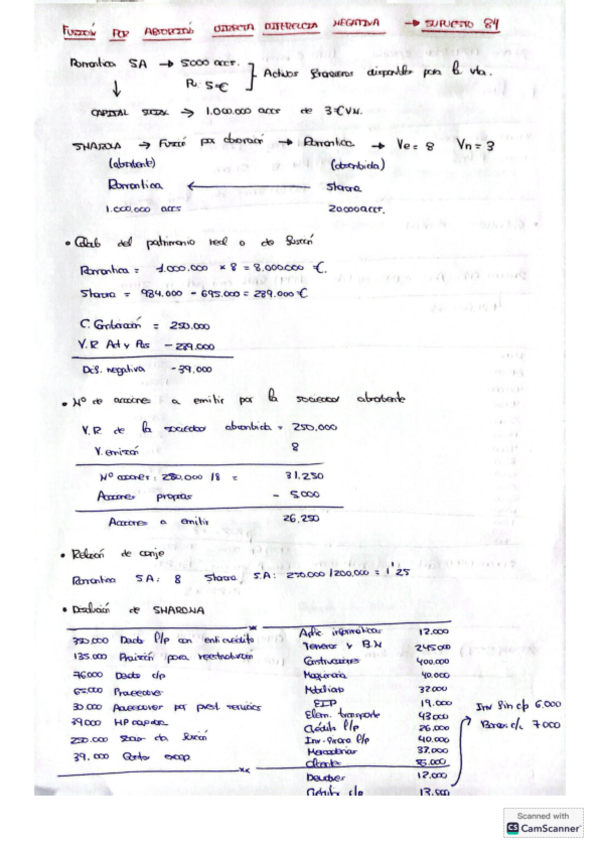 FUSIÓN POR ABSORCIÓN DIRECTA DIFERENCIA NEGATIVA → SUPUESTO 84
Romantica SA → 5000 acc.
P: 5€
Activos financieros disponibles para la vta.
CAPITAL SOCIAL → 1.000.000 accs de 3€ VN.
→ Fusión por absorción → Romantica → Ve = 8 Vn = 3
(absorbente) (absorbida)
Romantica ←
1.000.000 accs
• Calculo del patrimonio real o de fusión
Romantica = 1.000.000 × 8 = 8.000.000 €.
984.000 - 695.000 = 289.000 €
C. Combinación = 250.000
V.R Act y Pas - 289.000
Dif. negativa - 39.000
• Nº de acciones a emitir por la sociedad absorbente
V.R. de la sociedad absorbida = 250.000
V. emisión 8
Nº acciones: 250.000 / 8 = 31.250
Acciones propias - 5.000
Acciones a emitir 26.250
• Relación de canje
Romantica S.A: 8 S.A: 250.000 / 200.000 = 1'25
• Disolución de SHARONA
350.000 Deuda l/p con ent. crédito
135.000 Provisión para reestructuración
76.000 Deuda c/p
65.000 Proveedores
30.000 Acreedores por prest. servicios
39.000 HP
250.000 Socios de fusión
39.000
Aplic informaticas 12.000
Terrenos y B.N 245.000
Construcciones 400.000
Maquinaria 40.000
Mobiliario 32.000
EIP 19.000
Elem. transporte 43.000
Crédito l/p 26.000
l/p 40.000
Mercaderías 37.000
Clientes
Deudores 12.000
Crédito c/p 13.500
Inv fin c/p 6.000
Bancos c/c 7000
Scanned with
CS CamScanner